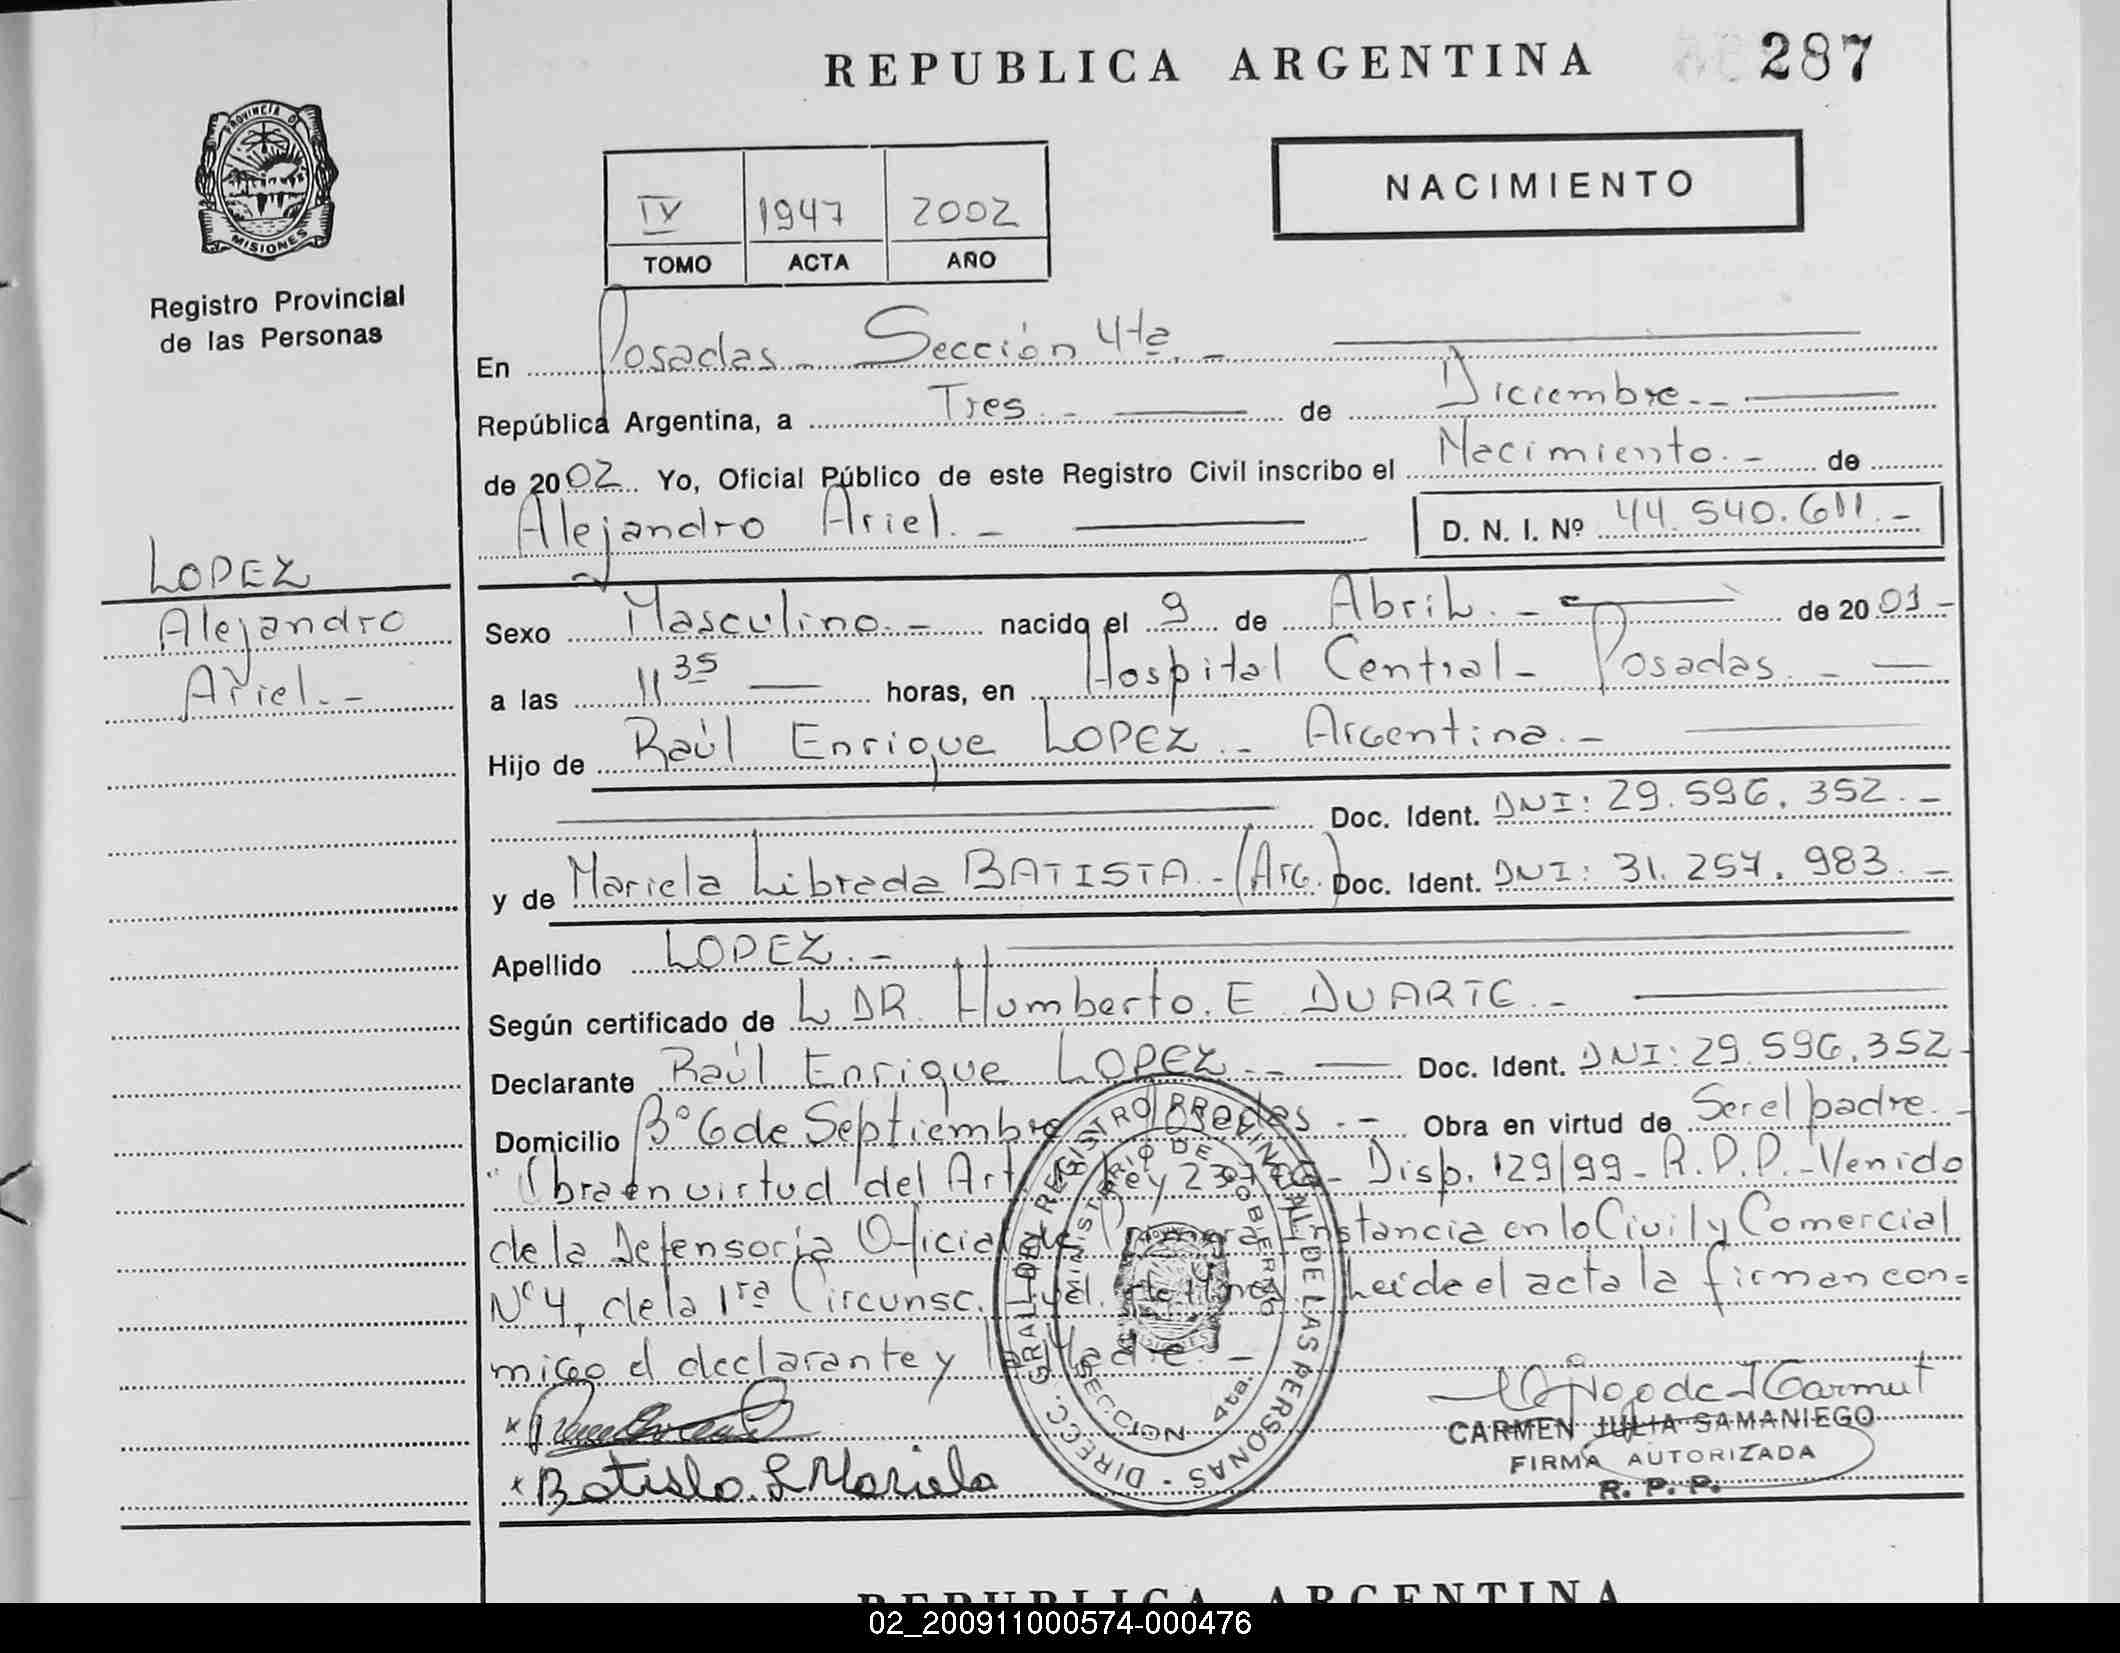 REPUBLICA ARGENTINA 287
PROVINCIA D
MISIONES
Registro Provincial
de las Personas
IV 1947 2002
TOMO ACTA AÑO
NACIMIENTO
En Posadas - Sección 4ta. -
República Argentina, a Tres. - de Diciembre. -
de 2002 Yo, Oficial Público de este Registro Civil inscribo el Nacimiento. - de
Alejandro Ariel. - D. N. I. Nº 44.540.611. -
LOPEZ
Alejandro
Ariel. -
Sexo Masculino. - nacido el 9 de Abril. - de 2001 -
a las 11 35 horas, en Hospital Central - Posadas. -
Hijo de Raúl Enrique LOPEZ. - Argentina. -
Doc. Ident. DNI: 29.596.352. -
y de Mariela Librada BATISTA. - (Arg.) Doc. Ident. DNI: 31.257.983. -
Apellido LOPEZ. -
Según certificado de L DR. Humberto. E DUARTE. -
Declarante Raúl Enrique LOPEZ. - Doc. Ident. DNI: 29.596.352 -
Domicilio Bº 6 de Septiembre Posadas. - Obra en virtud de Ser el padre. -
"Obra en virtud del Art. Ley - Disp. 129/99 - R.P.P. - Venido
de la Defensoría Oficial de Primera Instancia en lo Civil y Comercial
Nº 4, de la 1ra Circunsc. Leída el acta la firman con=
migo el declarante y la Madre. -
Batista. L Mariela
DIRECC. GRAL. DEL REGISTRO PROVINCIAL DE LAS PERSONAS -
MINISTERIO DE GOBIERNO
SECCION 4ta.
CARMEN JULIA SAMANIEGO
FIRMA AUTORIZADA
R. P. P.
REPUBLICA ARGENTINA
02_200911000574-000476